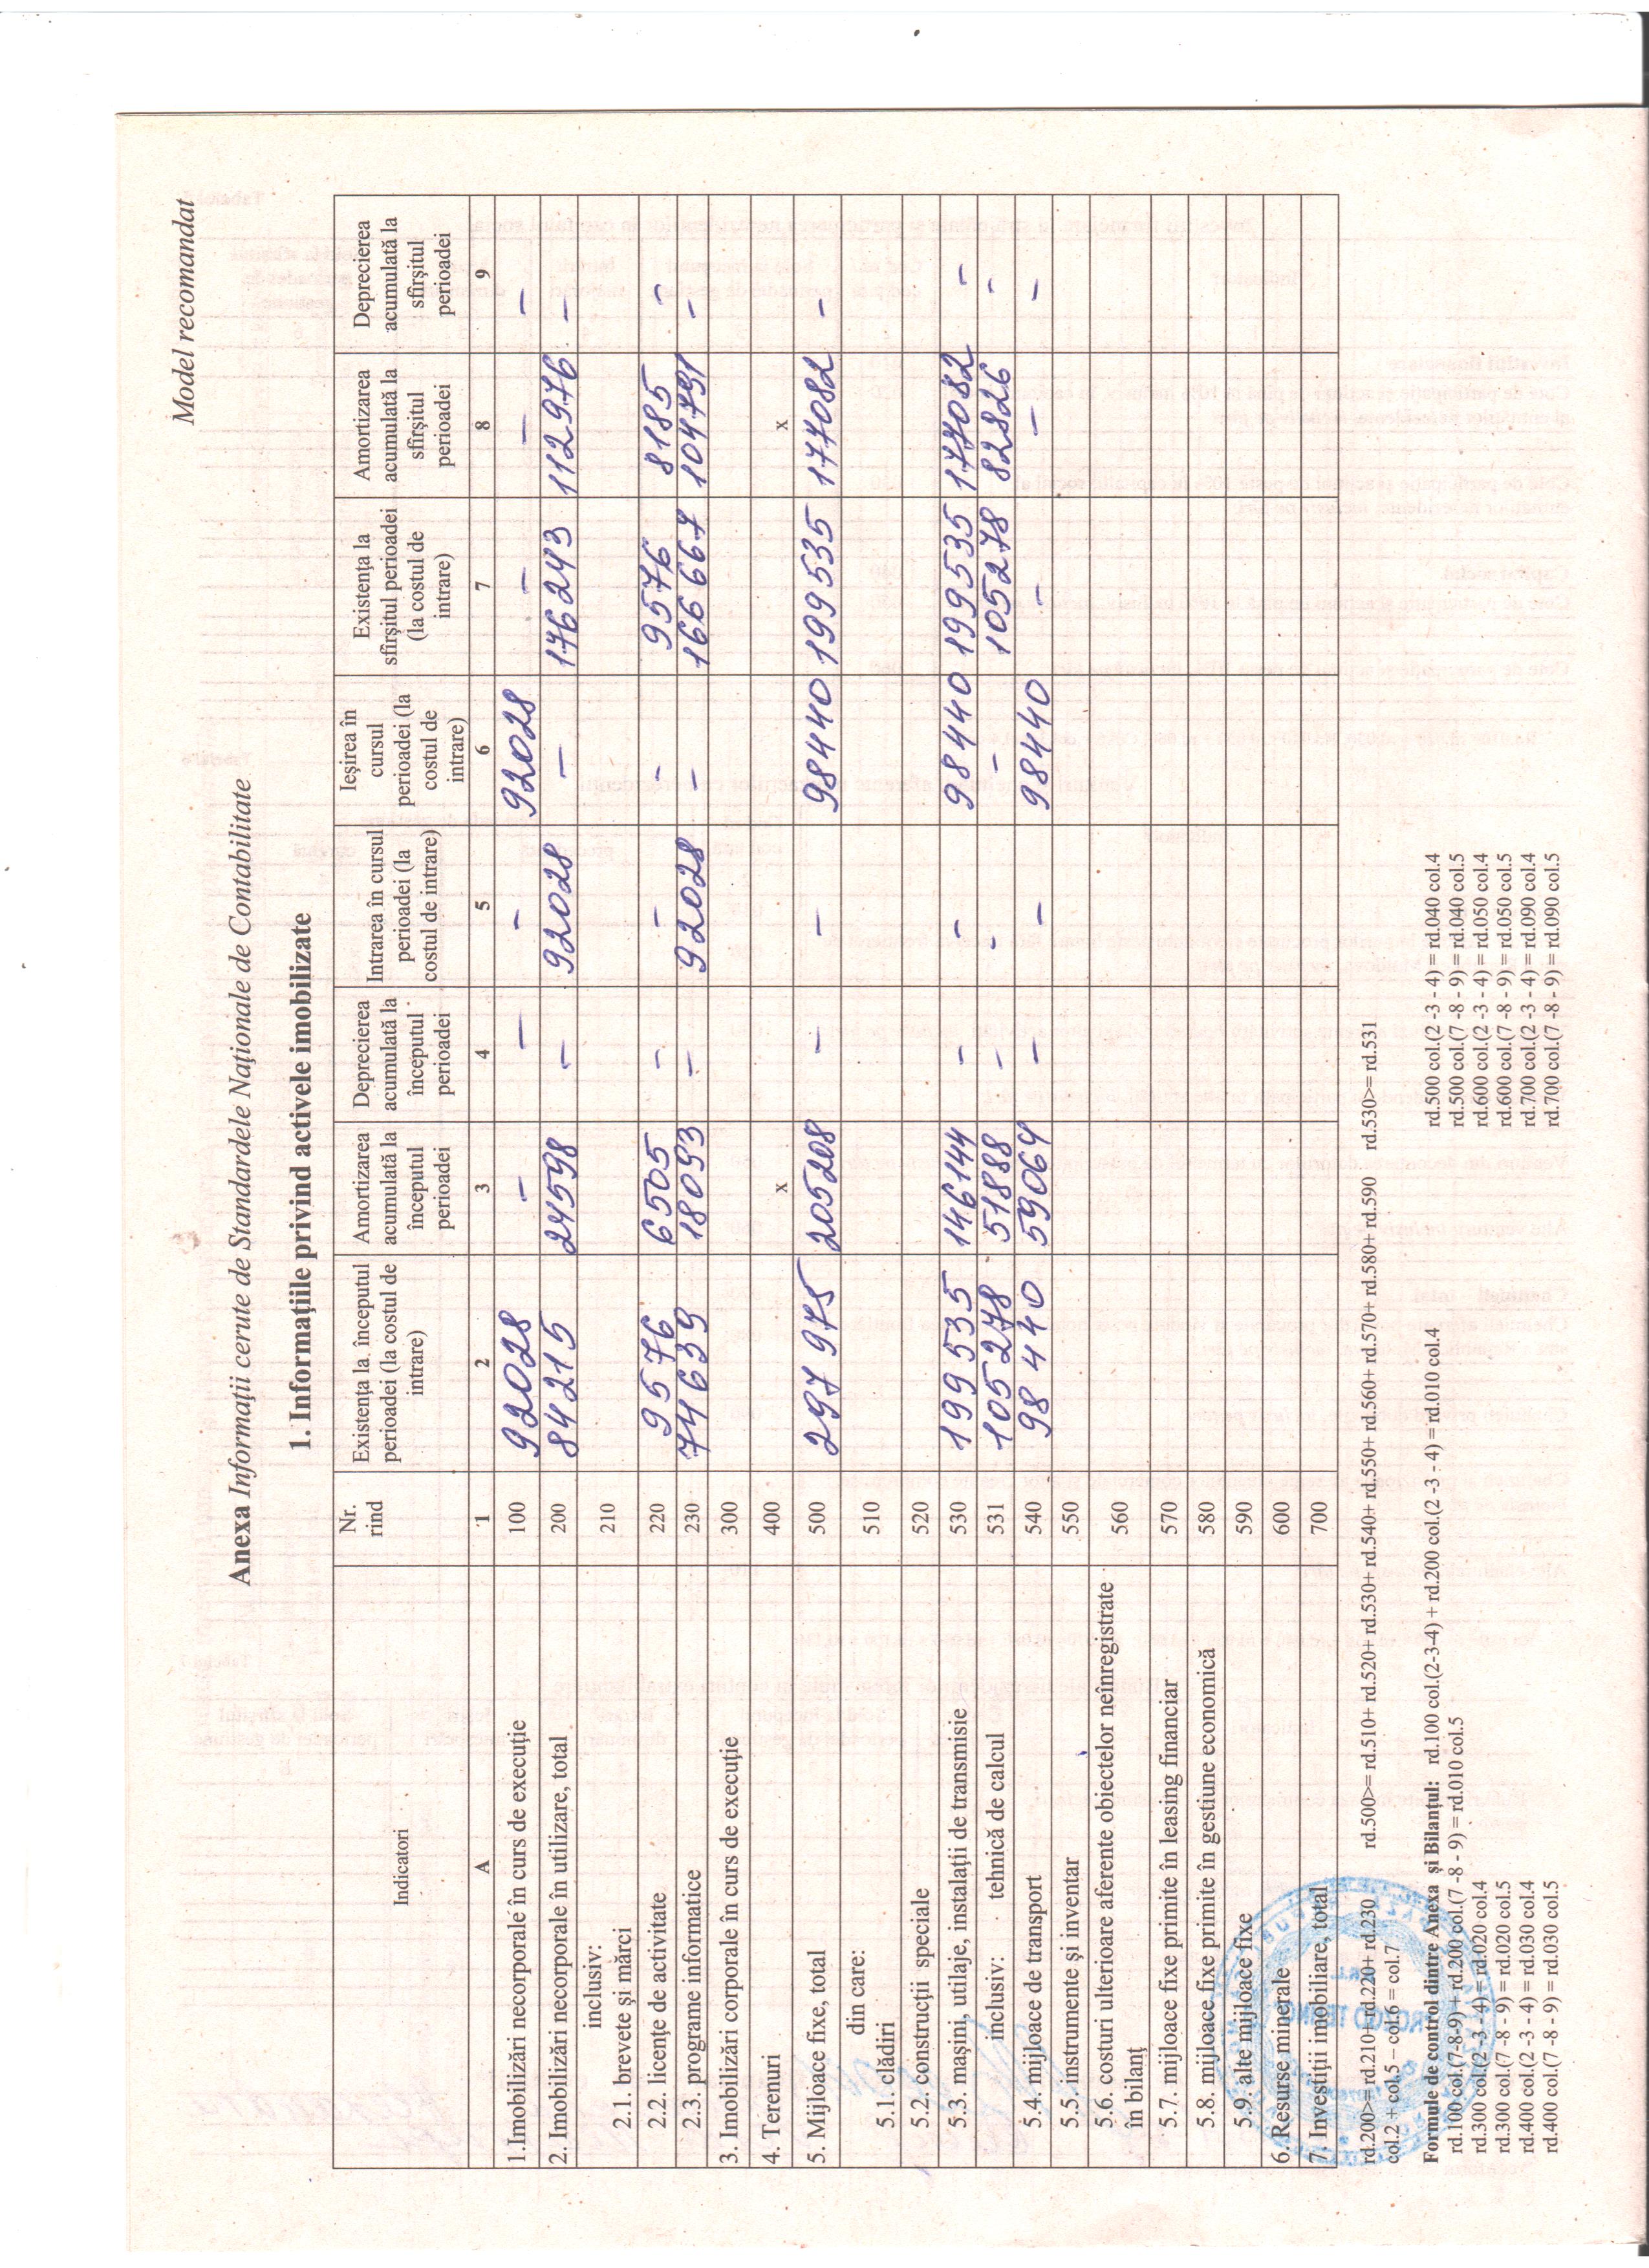 Model recomandat
Anexa Informaţii cerute de Standardele Naţionale de Contabilitate
1. Informaţiile privind activele imobilizate
Indicatori | Nr. rind | Existenţa la începutul perioadei (la costul de intrare) | Amortizarea acumulată la începutul perioadei | Deprecierea acumulată la începutul perioadei | Intrarea în cursul perioadei (la costul de intrare) | Ieşirea în cursul perioadei (la costul de intrare) | Existenţa la sfîrşitul perioadei (la costul de intrare) | Amortizarea acumulată la sfîrşitul perioadei | Deprecierea acumulată la sfîrşitul perioadei
A 1 2 3 4 5 6 7 8 9
1.Imobilizări necorporale în curs de execuţie 100 92028 – – – 92028 – – –
2. Imobilizări necorporale în utilizare, total 200 84215 24598 – 92028 – 176243 112976 –
inclusiv:
2.1. brevete şi mărci 210
2.2. licenţe de activitate 220 9576 6505 – – – 9576 8185 –
2.3. programe informatice 230 74639 18093 – 92028 – 166667 104791 –
3. Imobilizări corporale în curs de execuţie 300
4. Terenuri 400 x x
5. Mijloace fixe, total 500 297975 205208 – – 98440 199535 177082 –
din care:
5.1. clădiri 510
5.2. construcţii speciale 520
5.3. maşini, utilaje, instalaţii de transmisie 530 199535 146144 – – 98440 199535 177082 –
inclusiv: tehnică de calcul 531 105278 51888 – – – 105278 82826 –
5.4. mijloace de transport 540 98440 59064 – – 98440 – – –
5.5. instrumente şi inventar 550
5.6. costuri ulterioare aferente obiectelor neînregistrate în bilanţ 560
5.7. mijloace fixe primite în leasing financiar 570
5.8. mijloace fixe primite în gestiune economică 580
5.9. alte mijloace fixe 590
6. Resurse minerale 600
7. Investiţii imobiliare, total 700
rd.200>= rd.210+rd.220+ rd.230 rd.500>= rd.510+ rd.520+ rd.530+ rd.540+ rd.550+ rd.560+ rd.570+ rd.580+ rd.590 rd.530>= rd.531
col.2 + col.5 – col.6 = col.7
Formule de control dintre Anexa şi Bilanţul: rd.100 col.(2-3-4) + rd.200 col.(2 -3 - 4) = rd.010 col.4
rd.100 col.(7-8-9) + rd.200 col.(7 -8 - 9) = rd.010 col.5
rd.300 col.(2 -3 - 4) = rd.020 col.4
rd.300 col.(7 -8 - 9) = rd.020 col.5
rd.400 col.(2 -3 - 4) = rd.030 col.4
rd.400 col.(7 -8 - 9) = rd.030 col.5
rd.500 col.(2 -3 - 4) = rd.040 col.4
rd.500 col.(7 -8 - 9) = rd.040 col.5
rd.600 col.(2 -3 - 4) = rd.050 col.4
rd.600 col.(7 -8 - 9) = rd.050 col.5
rd.700 col.(2 -3 - 4) = rd.090 col.4
rd.700 col.(7 -8 - 9) = rd.090 col.5